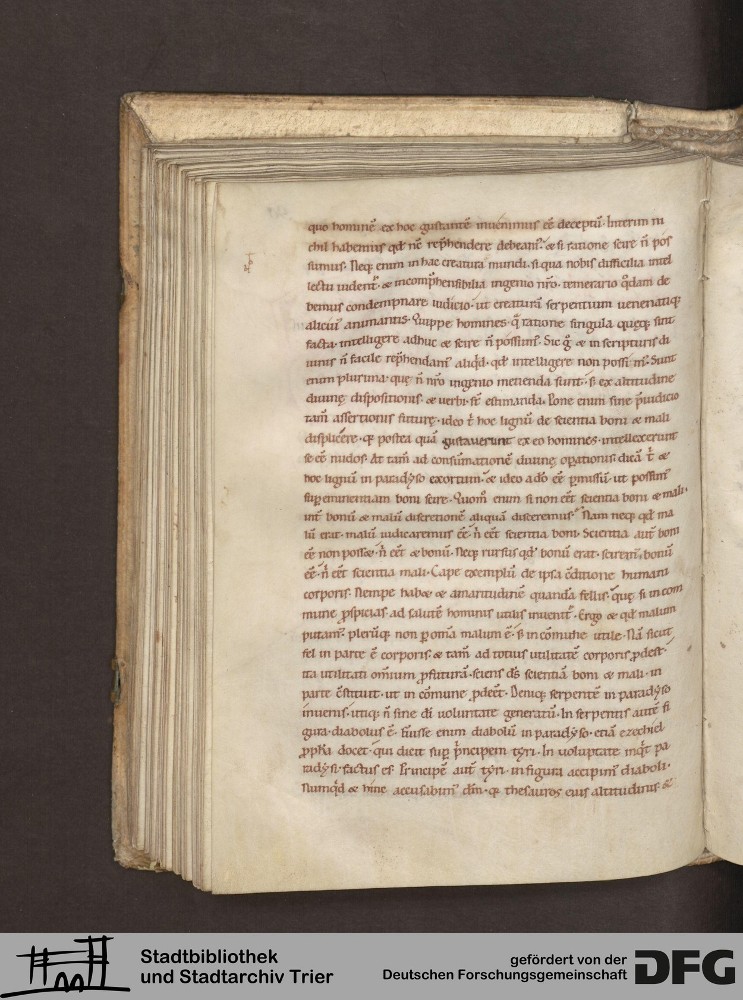 quo hominē ex hoc gustantē inuenimus eē deceptū. Interim ni
chil habemus qd nē rephendere debeam. & si ratione scire n̄ pos
sumus. Neq; enim in hac creatura mundi. si qua nobis difficilia intel
lectu uident. & incomphensibilia ingenio nr̄o. temerario qdam de
bemus condempnare iudicio. ut creaturā serpentium uenenatiq;
alicui animantis. Quippe homines. q ratione singula queq; sint
facta. intelligere adhuc & scire n̄ possum. Sic g & in scripturis di
uinis n̄ facile rephendam aliqd. qd intelligere non possim. Sunt
enim plurima. que n̄ nr̄o ingenio metienda sunt. s; ex altitudine
diuine dispositionis. & uerbi. st estimanda. Pone enim sine piudicio
tam assertionis future. ideo t hoc lignū de scientia boni & mali
displicere. qr postea quā gustauerunt ex eo homines. intellexerunt
se eē nudos. At tam ad consūmationē diuine opationis. dicā t &
hoc lignum in paradyso exortum. & ideo a dō eē pmissū. ut possim
supeminentiam boni scire. Quom enim si non eēt scientia boni & mali.
int bonū & malū discretionē aliquā disceremus. Nam neq; qd ma
lū erat. malū iudicaremus eē. n eēt scientia boni. Scientia aut boni
eē non posset. n eēt & bonū. Neq; rursus qd bonū erat. sciremus bonū
eē. n eēt scientia mali. Cape exemplū de ipsa c̄ditione humani
corporis. Nempe habet & amaritudinē quandā fellis. que si in com
mune pspicias. ad salutē hominis utilis inuenit. Ergo & qd malum
putam. plerūq; non p om̄ia malum ē. s; in cōmune utile. Nā sicut
fel in parte ē corporis. & tam ad totius utilitatē corporis pdest.
ita utilitati omnium pfuturā. sciens ds scientiā boni & mali. in
parte cstituit. ut in cōmune pdeēt. Deniq; serpentē in paradyso
inuenis. utiq; n̄ sine di uoluntate generatū. In serpentis autē fi
gura. diabolus ē. Fuisse enim diabolū in paradyso. etiā ezechiel
ppha docet. qui dicit sup pncipem tyri. In uoluptate inqt pa
radysi. factus es. Principē aut tyri. in figura accipim diaboli.
Numqd & hinc accusabim dnm. qr thesauros eius altitudinis &
Stadtbibliothek
und Stadtarchiv Trier
gefördert von der
Deutschen Forschungsgemeinschaft
DFG